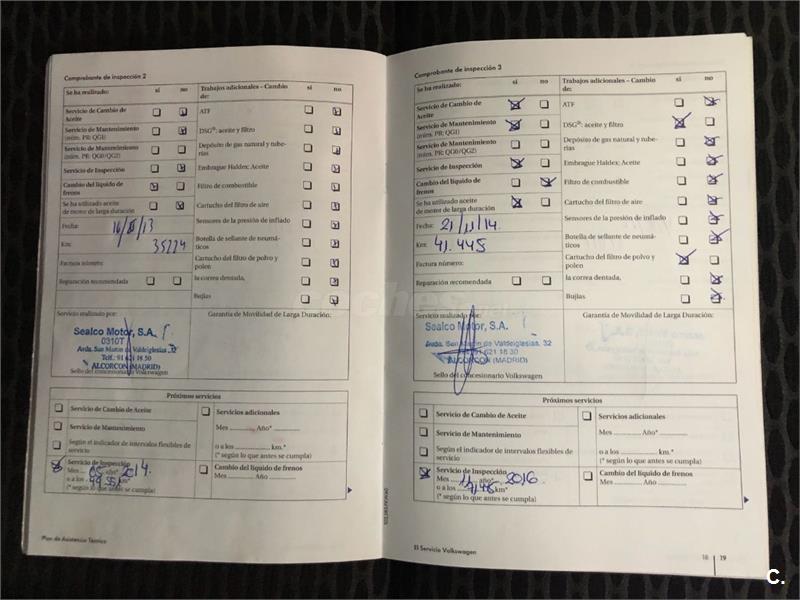 Comprobante de inspección 2
Se ha realizado: sí no
Servicio de Cambio de
Aceite
Servicio de Mantenimiento
(núm. PR: QGI)
Servicio de Mantenimiento
(núm. PR: QG0/QG2)
Servicio de Inspección
Cambio del líquido de
frenos
Se ha utilizado aceite
de motor de larga duración
Fecha: 16/ /13
Km: 35224
Factura número:
Reparación recomendada
Trabajos adicionales – Cambio sí no
de:
ATF
DSG®: aceite y filtro
Depósito de gas natural y tube-
rías
Embrague Haldex: Aceite
Filtro de combustible
Cartucho del filtro de aire
Sensores de la presión de inflado
Botella de sellante de neumá-
ticos
Cartucho del filtro de polvo y
polen
la correa dentada,
Bujías
Servicio realizado por:
Sealco Motor, S.A.
0310T
Avda. San Martín de Valdeiglesias, 32
Telf.: 91 621 18 30
ALCORCON (MADRID)
Sello del concesionario Volkswagen
Garantía de Movilidad de Larga Duración:
Próximos servicios
Servicio de Cambio de Aceite
Servicio de Mantenimiento
Según el indicador de intervalos flexibles de
servicio
Servicio de Inspección
Mes 05 año* 2014.
o a los km*
(* según lo que antes se cumpla)
Servicios adicionales
Mes Año*
o a los km.*
(* según lo que antes se cumpla)
Cambio del líquido de frenos
Mes Año
Plan de Asistencia Técnica
Comprobante de inspección 3
Se ha realizado: sí no
Servicio de Cambio de
Aceite
Servicio de Mantenimiento
(núm. PR: QGI)
Servicio de Mantenimiento
(núm. PR: QG0/QG2)
Servicio de Inspección
Cambio del líquido de
frenos
Se ha utilizado aceite
de motor de larga duración
Fecha: 21/11/14.
Km: 41.445
Factura número:
Reparación recomendada
Trabajos adicionales – Cambio sí no
de:
ATF
DSG®: aceite y filtro
Depósito de gas natural y tube-
rías
Embrague Haldex: Aceite
Filtro de combustible
Cartucho del filtro de aire
Sensores de la presión de inflado
Botella de sellante de neumá-
ticos
Cartucho del filtro de polvo y
polen
la correa dentada,
Bujías
Servicio realizado por:
Sealco Motor, S.A.
Avda. San Martín de Valdeiglesias, 32
91 621 18 30
ALCORCON (MADRID)
Sello del concesionario Volkswagen
Garantía de Movilidad de Larga Duración:
Próximos servicios
Servicio de Cambio de Aceite
Servicio de Mantenimiento
Según el indicador de intervalos flexibles de
servicio
Servicio de Inspección
Mes 11 año* 2016.
o a los km*
(* según lo que antes se cumpla)
Servicios adicionales
Mes Año*
o a los km.*
(* según lo que antes se cumpla)
Cambio del líquido de frenos
Mes Año
El Servicio Volkswagen
18 19
coches
C.